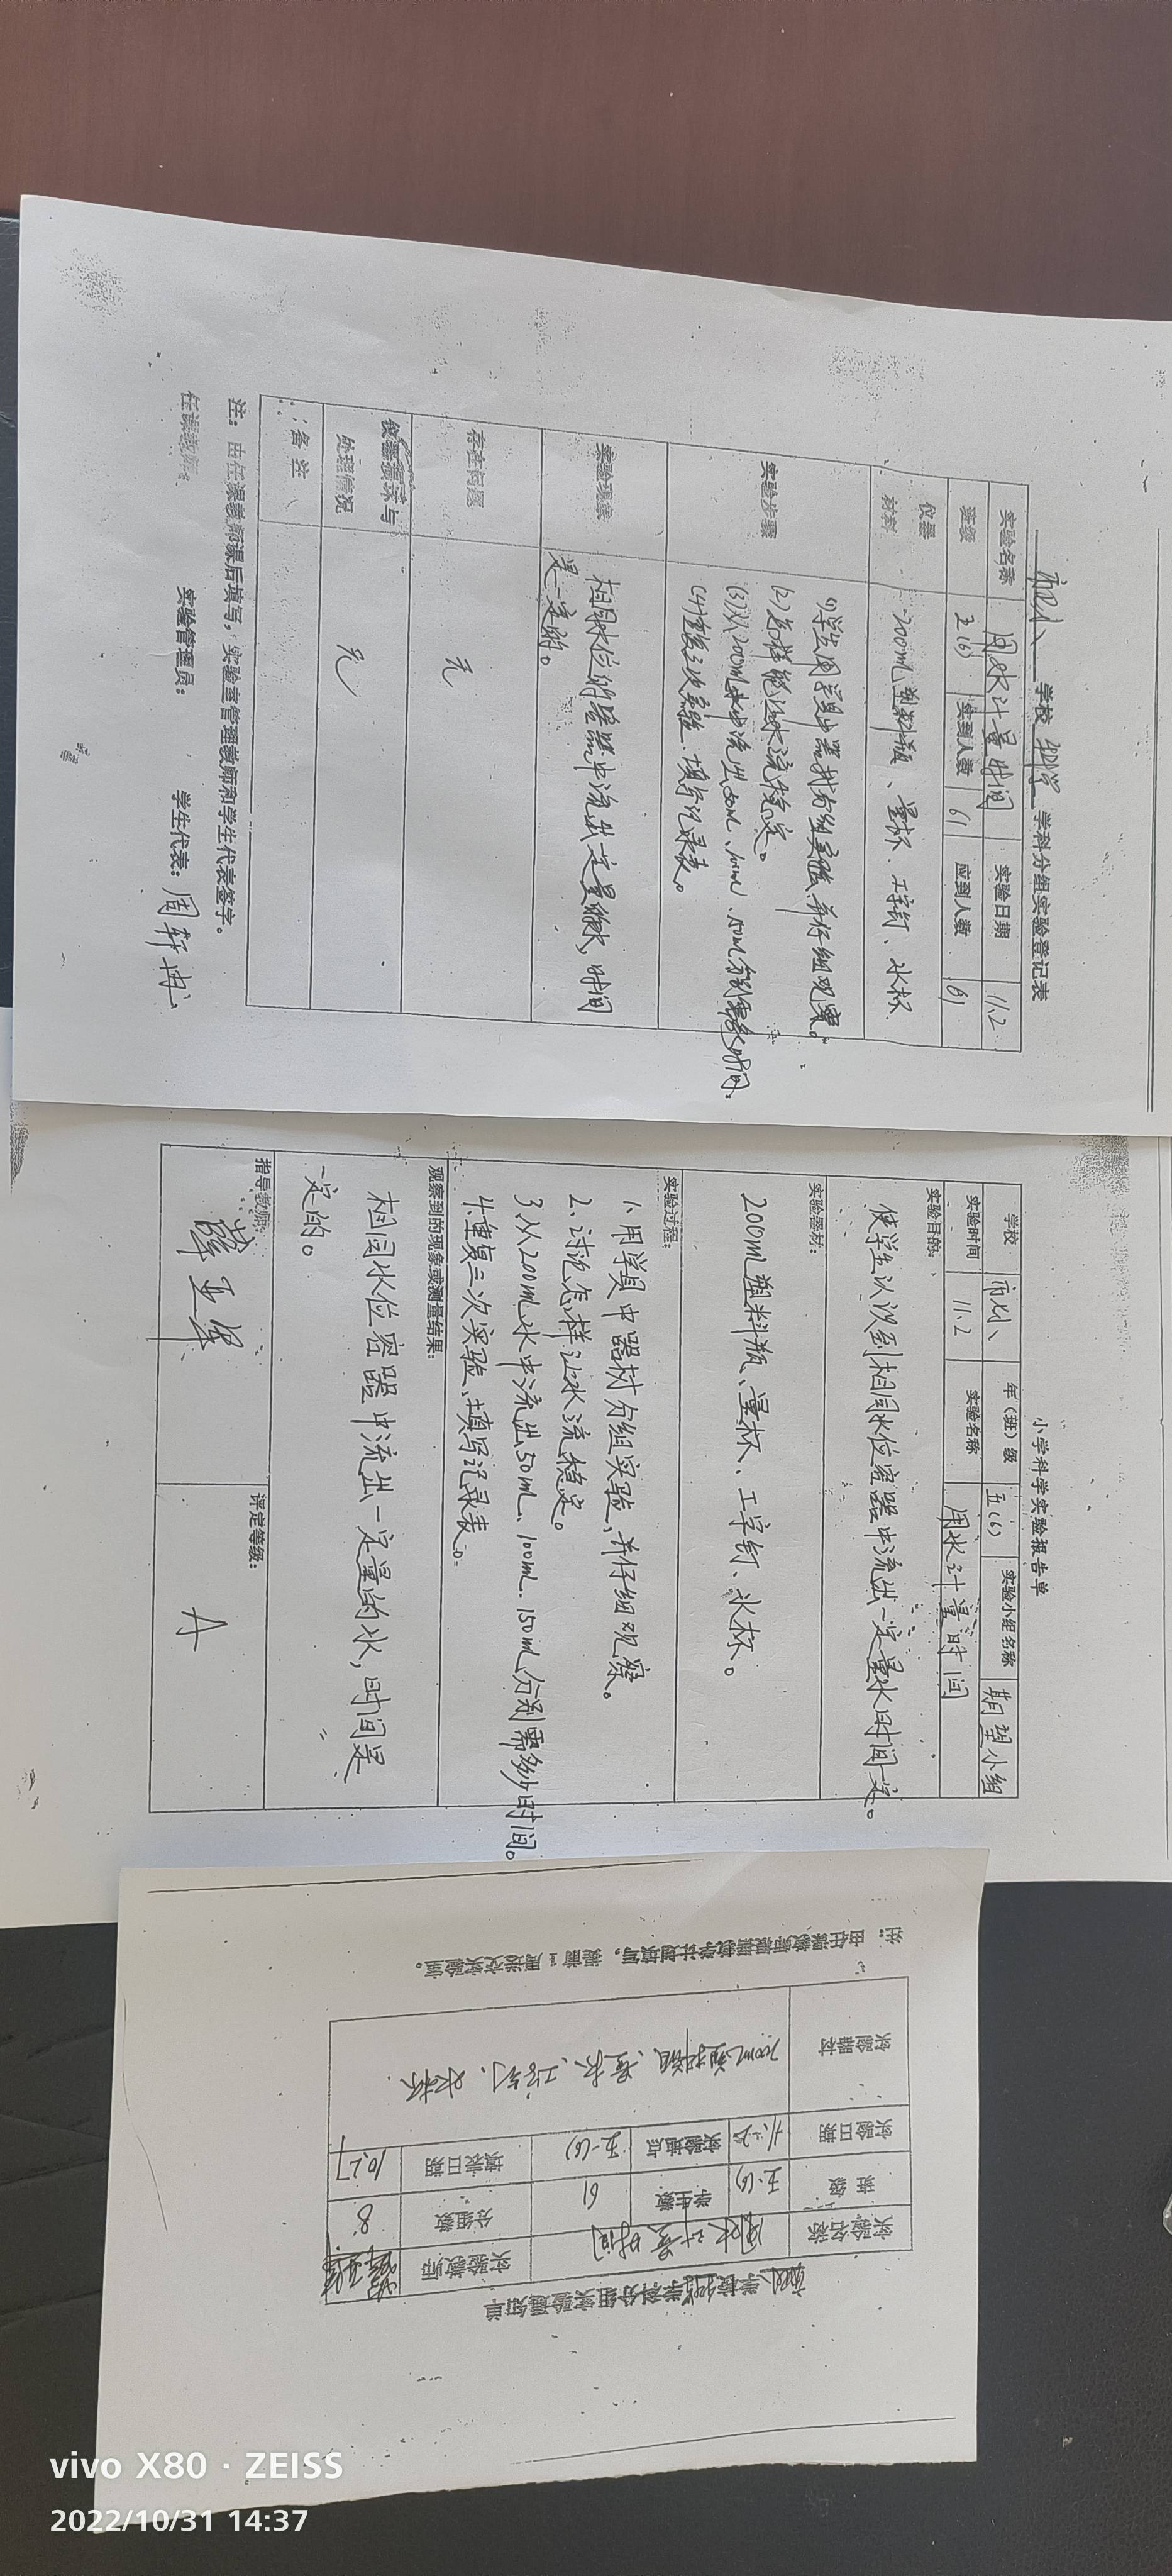 学校 科学 学科分组实验登记表
实验名称 用水计量时间 实验日期 11.2
班级 五(6) 实到人数 61 应到人数 61
仪器材料 200mL塑料瓶、量杯、工字钉、水杯.
实验步骤
(1)学生用学具中器材分组实验,并仔细观察。
(2)怎样能让水流稳定。
(3)从200mL水中流出50mL、100mL、150mL分别需多少时间.
(4)重复三次实验.填写记录表。
实验现象 相同水位的容器中流出一定量的水,时间
是一定的。
存在问题 无
仪器损坏与
处理情况 无
备注
注:由任课教师课后填写,实验室管理教师和学生代表签字。
任课教师: 实验管理员: 学生代表:周轩冉
小学科学实验报告单
学校 年(班)级 五(6) 实验小组名称 期望小组
实验时间 11.2 实验名称 用水计量时间
实验目的:
使学生认识到相同水位容器中流出一定量水时间一定。
实验器材:
200mL塑料瓶、量杯、工字钉、水杯。
实验过程:
1.用学具中器材分组实验,并仔细观察。
2.讨论怎样让水流稳定。
3.从200mL水中流出50mL、100mL.150mL分别需多少时间。
4.重复三次实验,填写记录表。
观察到的现象或测量结果:
相同水位容器中流出一定量的水,时间是
一定的。
指导教师: 评定等级:
A
学校科学学科分组实验通知单
实验名称 用水计量时间 实验教师
班级 五(6) 学生数 61 分组数 8
实验日期 11.2 实验地点 五(6) 填表日期 10.27
实验器材 200mL塑料瓶、量杯、工字钉、水杯.
注:由任课教师根据教学计划填写,提前1周送交实验室。
vivo X80 · ZEISS
2022/10/31 14:37